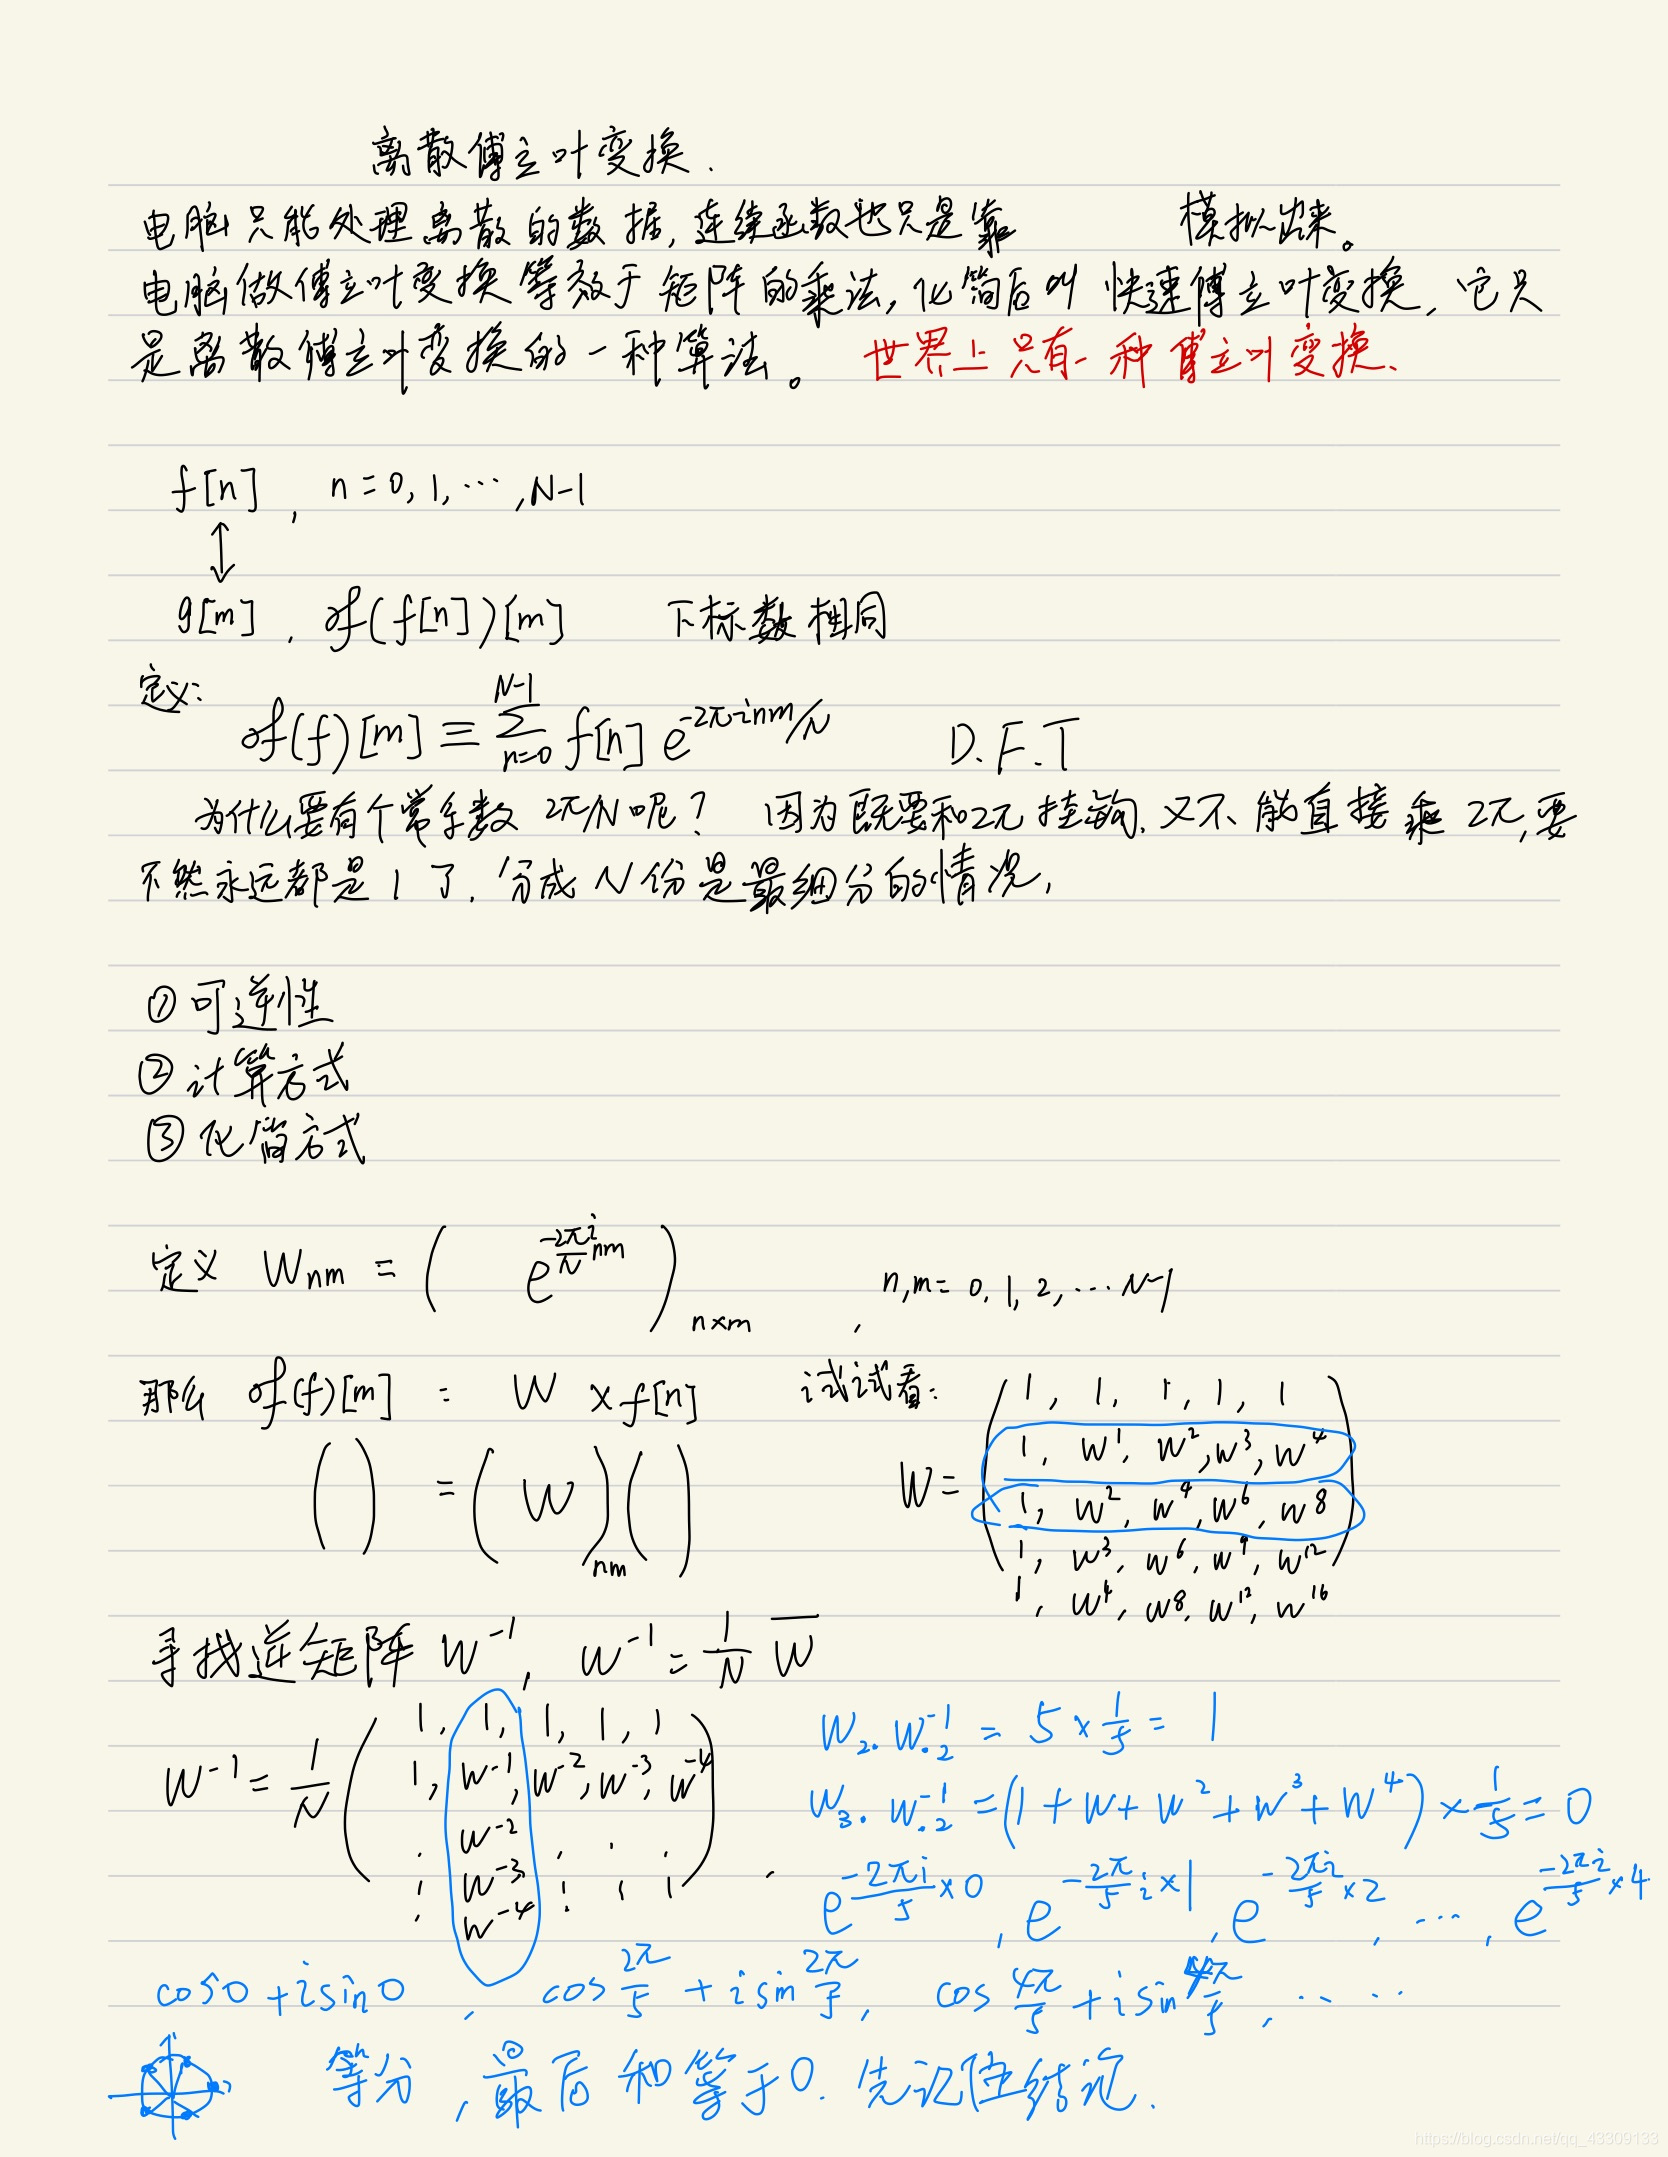 离散傅立叶变换.
电脑只能处理离散的数据,连续函数也只是靠 模拟出来。
电脑做傅立叶变换等效于矩阵的乘法,化简后叫快速傅立叶变换,它只
是离散傅立叶变换的一种算法。 世界上只有一种傅立叶变换.
f[n] , n=0,1,⋯,N-1
↕
g[m] , ℱ(f[n])[m] 下标数相同
定义:
ℱ(f)[m] ≡ ∑_{n=0}^{N-1} f[n] e^{-2πinm/N} D.F.T
为什么要有个常系数 2π/N 呢? 因为既要和2π挂钩,又不能直接乘2π,要
不然永远都是1了. 分成N份是最细分的情况,
① 可逆性
② 计算方式
③ 化简方式
定义 W_{nm} = ( e^{\frac{-2πi}{N}nm} )_{n×m} , n,m= 0,1,2,⋯N-1
那么 ℱ(f)[m] = W × f[n] 试试看:
( ) = ( W )_{nm} ( )
W= ( 1, 1, 1, 1, 1
1, w^1, w^2, w^3, w^4
1, w^2, w^4, w^6, w^8
1, w^3, w^6, w^9, w^12
1, w^4, w^8, w^12, w^16 )
寻找逆矩阵 W^{-1}, W^{-1} = \frac{1}{N} \overline{W}
W^{-1} = \frac{1}{N} ( 1, 1, 1, 1, 1
1, w^{-1}, w^{-2}, w^{-3}, w^{-4}
. w^{-2} . . .
. w^{-3} . . .
. w^{-4} )
W_{2·} W_{·2}^{-1} = 5 × \frac{1}{5} = 1
W_{3·} W_{·2}^{-1} = (1+w+w^2+w^3+w^4) × \frac{1}{5} = 0
e^{\frac{-2πi}{5}×0} , e^{-\frac{2π}{5}i×1} , e^{-\frac{2πi}{5}×2} , ⋯ , e^{\frac{-2πi}{5}×4}
cos0+isin0 , cos\frac{2π}{5}+isin\frac{2π}{5} , cos\frac{4π}{5}+isin\frac{4π}{5} , ⋯⋯
等分,最后和等于0. 先记住结论.
https://blog.csdn.net/qq_43309133